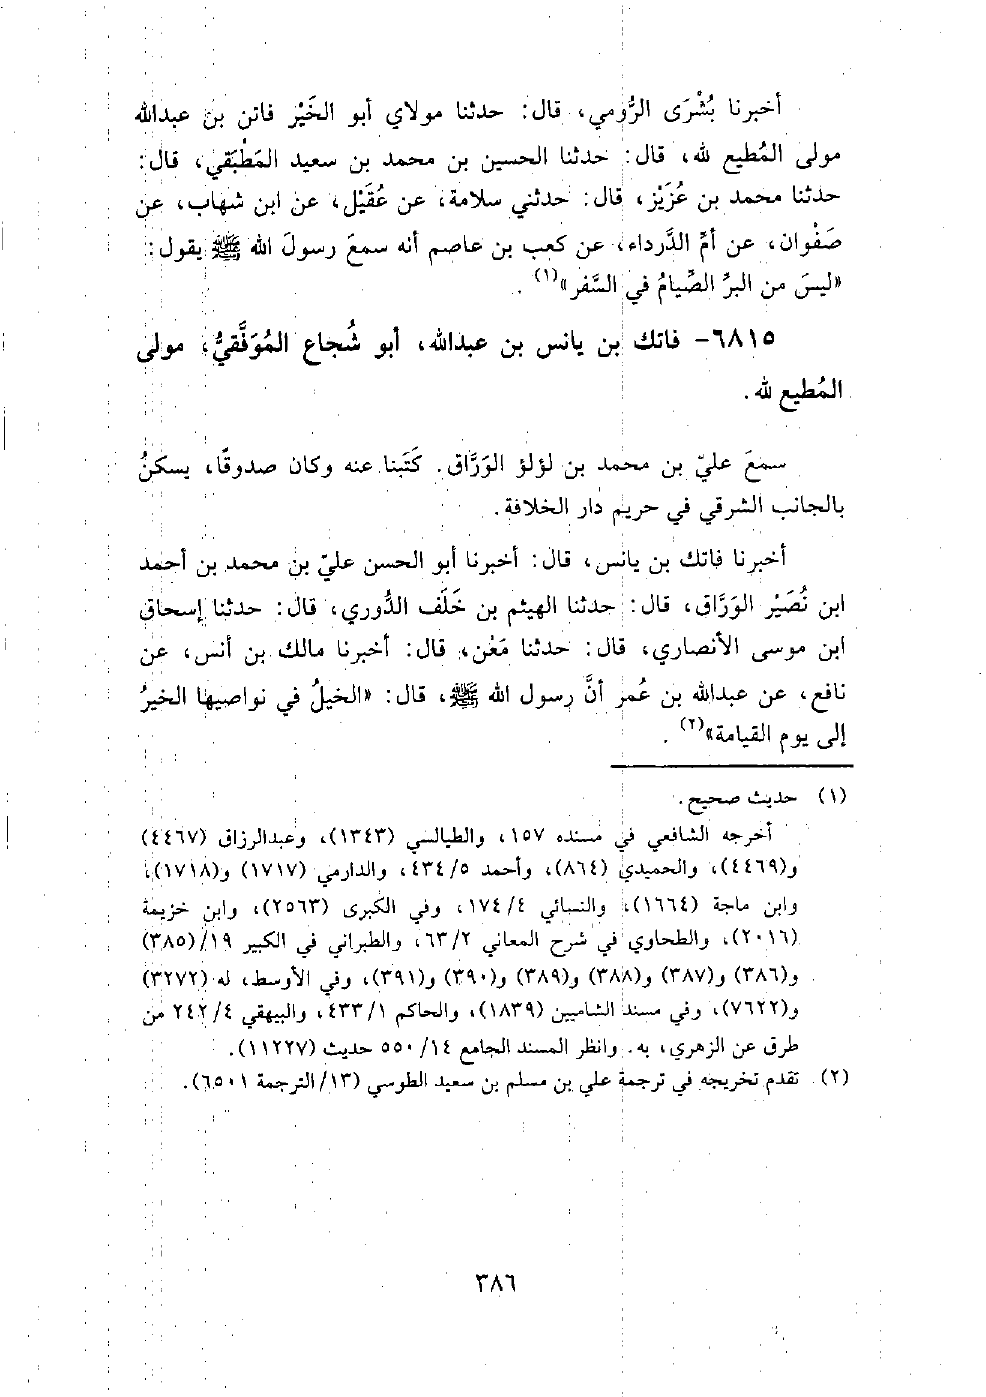 أخبرنا بُشْرَى الرُّومي، قال: حدثنا مولاي أبو الخَيْر فاتن بن عبدالله
مولى المُطيع لله، قال: حدثنا الحسين بن محمد بن سعيد المَطْبَقي، قال:
حدثنا محمد بن عُزَيْز، قال: حدثني سلامة، عن عُقَيْل، عن ابن شهاب، عن
صَفْوان، عن أمِّ الدَّرداء، عن كعب بن عاصم أنه سمعَ رسولَ الله ﷺ يقول:
«ليسَ من البرِّ الصِّيامُ في السَّفر»(١) .
٦٨١٥- فاتك بن يانس بن عبدالله، أبو شُجاع المُوَفَّقيُّ، مولى
المُطيع لله .
سمعَ عليّ بن محمد بن لؤلؤ الوَرَّاق. كَتَبنا عنه وكان صدوقًا، يسكنُ
بالجانب الشرقي في حريم دار الخلافة.
أخبرنا فاتك بن يانس، قال: أخبرنا أبو الحسن عليّ بن محمد بن أحمد
ابن نُصَيْر الوَرَّاق، قال: حدثنا الهيثم بن خَلَف الدُّوري، قال: حدثنا إسحاق
ابن موسى الأنصاري، قال: حدثنا مَعْن، قال: أخبرنا مالك بن أنس، عن
نافع، عن عبدالله بن عُمر أنَّ رسول الله ﷺ، قال: «الخيلُ في نواصيها الخيرُ
إلى يوم القيامة»(٢) .
(١) حديث صحيح.
أخرجه الشافعي في مسنده ١٥٧، والطيالسي (١٣٤٣)، وعبدالرزاق (٤٤٦٧)
و(٤٤٦٩)، والحميدي (٨٦٤)، وأحمد ٤٣٤/٥، والدارمي (١٧١٧) و(١٧١٨)،
وابن ماجة (١٦٦٤)، والنسائي ١٧٤/٤، وفي الكبرى (٢٥٦٣)، وابن خزيمة
(٢٠١٦)، والطحاوي في شرح المعاني ٦٣/٢، والطبراني في الكبير ١٩/(٣٨٥)
و(٣٨٦) و(٣٨٧) و(٣٨٨) و(٣٨٩) و(٣٩٠) و(٣٩١)، وفي الأوسط، له (٣٢٧٢)
و(٧٦٢٢)، وفي مسند الشاميين (١٨٣٩)، والحاكم ٤٣٣/١، والبيهقي ٢٤٢/٤ من
طرق عن الزهري، به. وانظر المسند الجامع ٥٥٠/١٤ حديث (١١٢٢٧).
(٢) تقدم تخريجه في ترجمة علي بن مسلم بن سعيد الطوسي (١٣/الترجمة ٦٥٠١).
٣٨٦